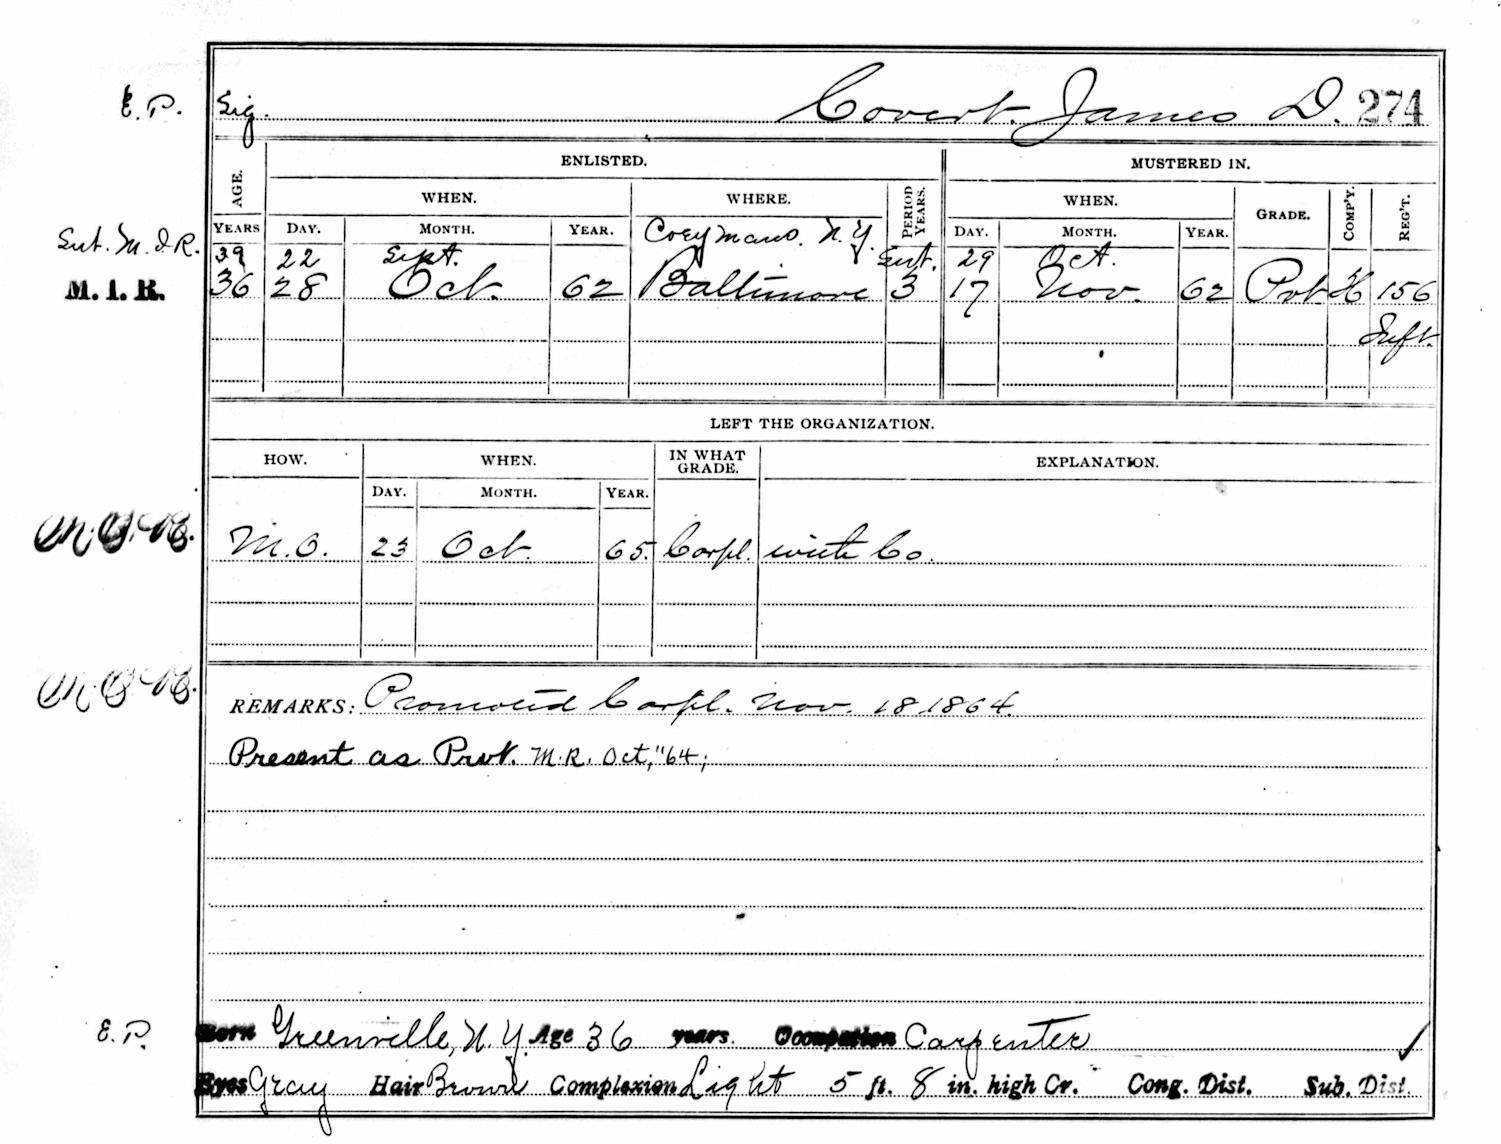 E.P. Sig. Covert. James D. 274
AGE. ENLISTED. MUSTERED IN.
WHEN. WHERE. PERIOD YEARS. WHEN. GRADE. COMP'Y. REG'T.
YEARS DAY. MONTH. YEAR. Coeymans. N.Y. DAY. MONTH. YEAR.
Sut. M.I.R. 39 22 Sept. Sut. 29 Oct.
M. I. R. 36 28 Oct. 62 Baltimore 3 17 Nov. 62 Pvt H 156
Inft.
LEFT THE ORGANIZATION.
HOW. WHEN. IN WHAT GRADE. EXPLANATION.
DAY. MONTH. YEAR.
M.O.R. M.O. 23 Oct. 65. Corpl. with Co.
M.O.R. REMARKS: Promoted Corpl. Nov. 18.1864.
Present as Prvt. M.R. Oct, "64;
E.P. Born Greenville, N.Y. Age 36 years. Occupation Carpenter ✓
Eyes Gray Hair Brown Complexion Light 5 ft. 8 in. high Cr. Cong. Dist. Sub. Dist.